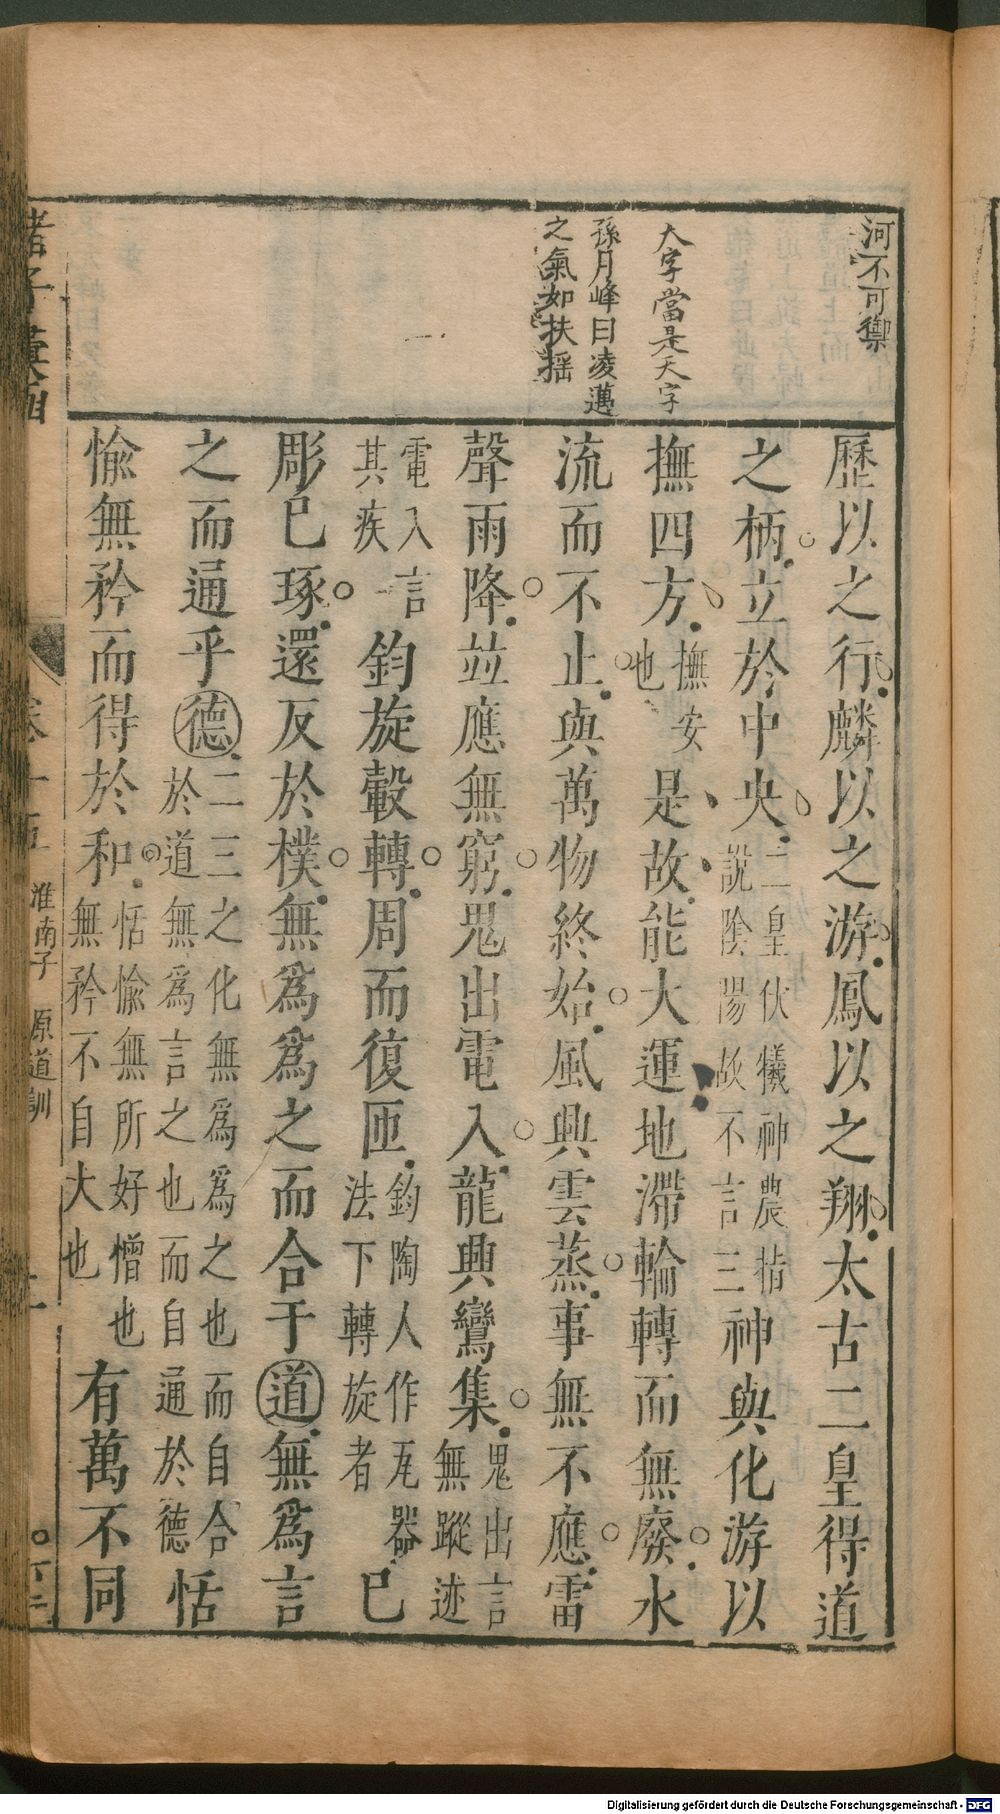 河不可禦
大字當是天字
孫月峰曰凌邁
之氣如扶摇
歷以之行麟以之游鳳以之翔太古二皇得道
之柄立於中央二皇伏犧神農指說陰陽故不言三神與化游以
撫四方撫安也是故能大運地滯輪轉而無廢水
流而不止與萬物終始風興雲蒸事無不應雷
聲雨降竝應無窮鬼出電入龍興鸞集鬼出言無蹤迹
電入言其疾鈞旋轂轉周而復匝鈞陶人作瓦器法下轉旋者已
彫已琢還反於樸無爲爲之而合于道無爲言
之而通乎德二三之化無爲爲之也而自合於道無爲言之也而自通於德恬
愉無矜而得於和恬愉無所好憎也無矜不自大也有萬不同
諸子彙函
卷十五 淮南子 原道訓
Digitalisierung gefördert durch die Deutsche Forschungsgemeinschaft - DFG